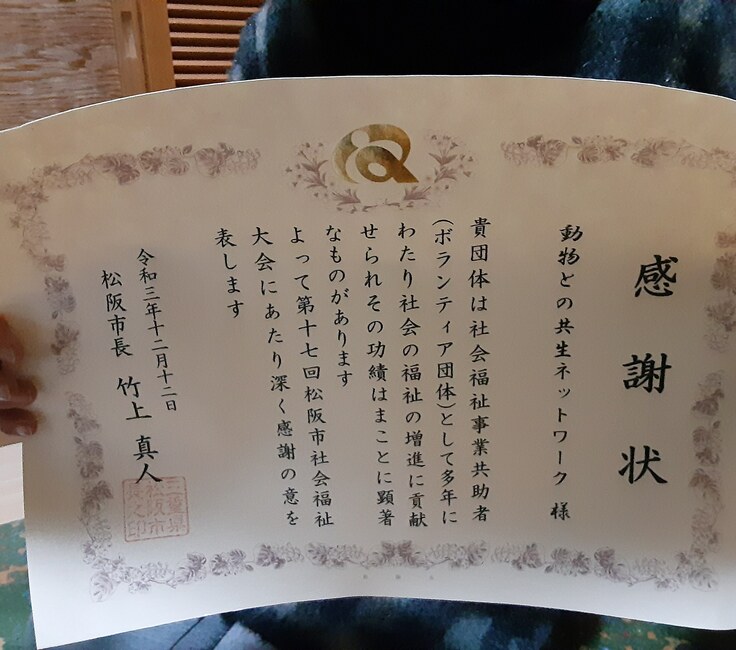 感謝状
動物との共生ネットワーク 様
貴団体は社会福祉事業共助者
(ボランティア団体)として多年に
わたり社会の福祉の増進に貢献
せられその功績はまことに顕著
なものがあります
よって第十七回松阪市社会福祉
大会にあたり深く感謝の意を
表します
令和三年十二月十二日
松阪市長 竹上真人
三重県
松阪市
長之印